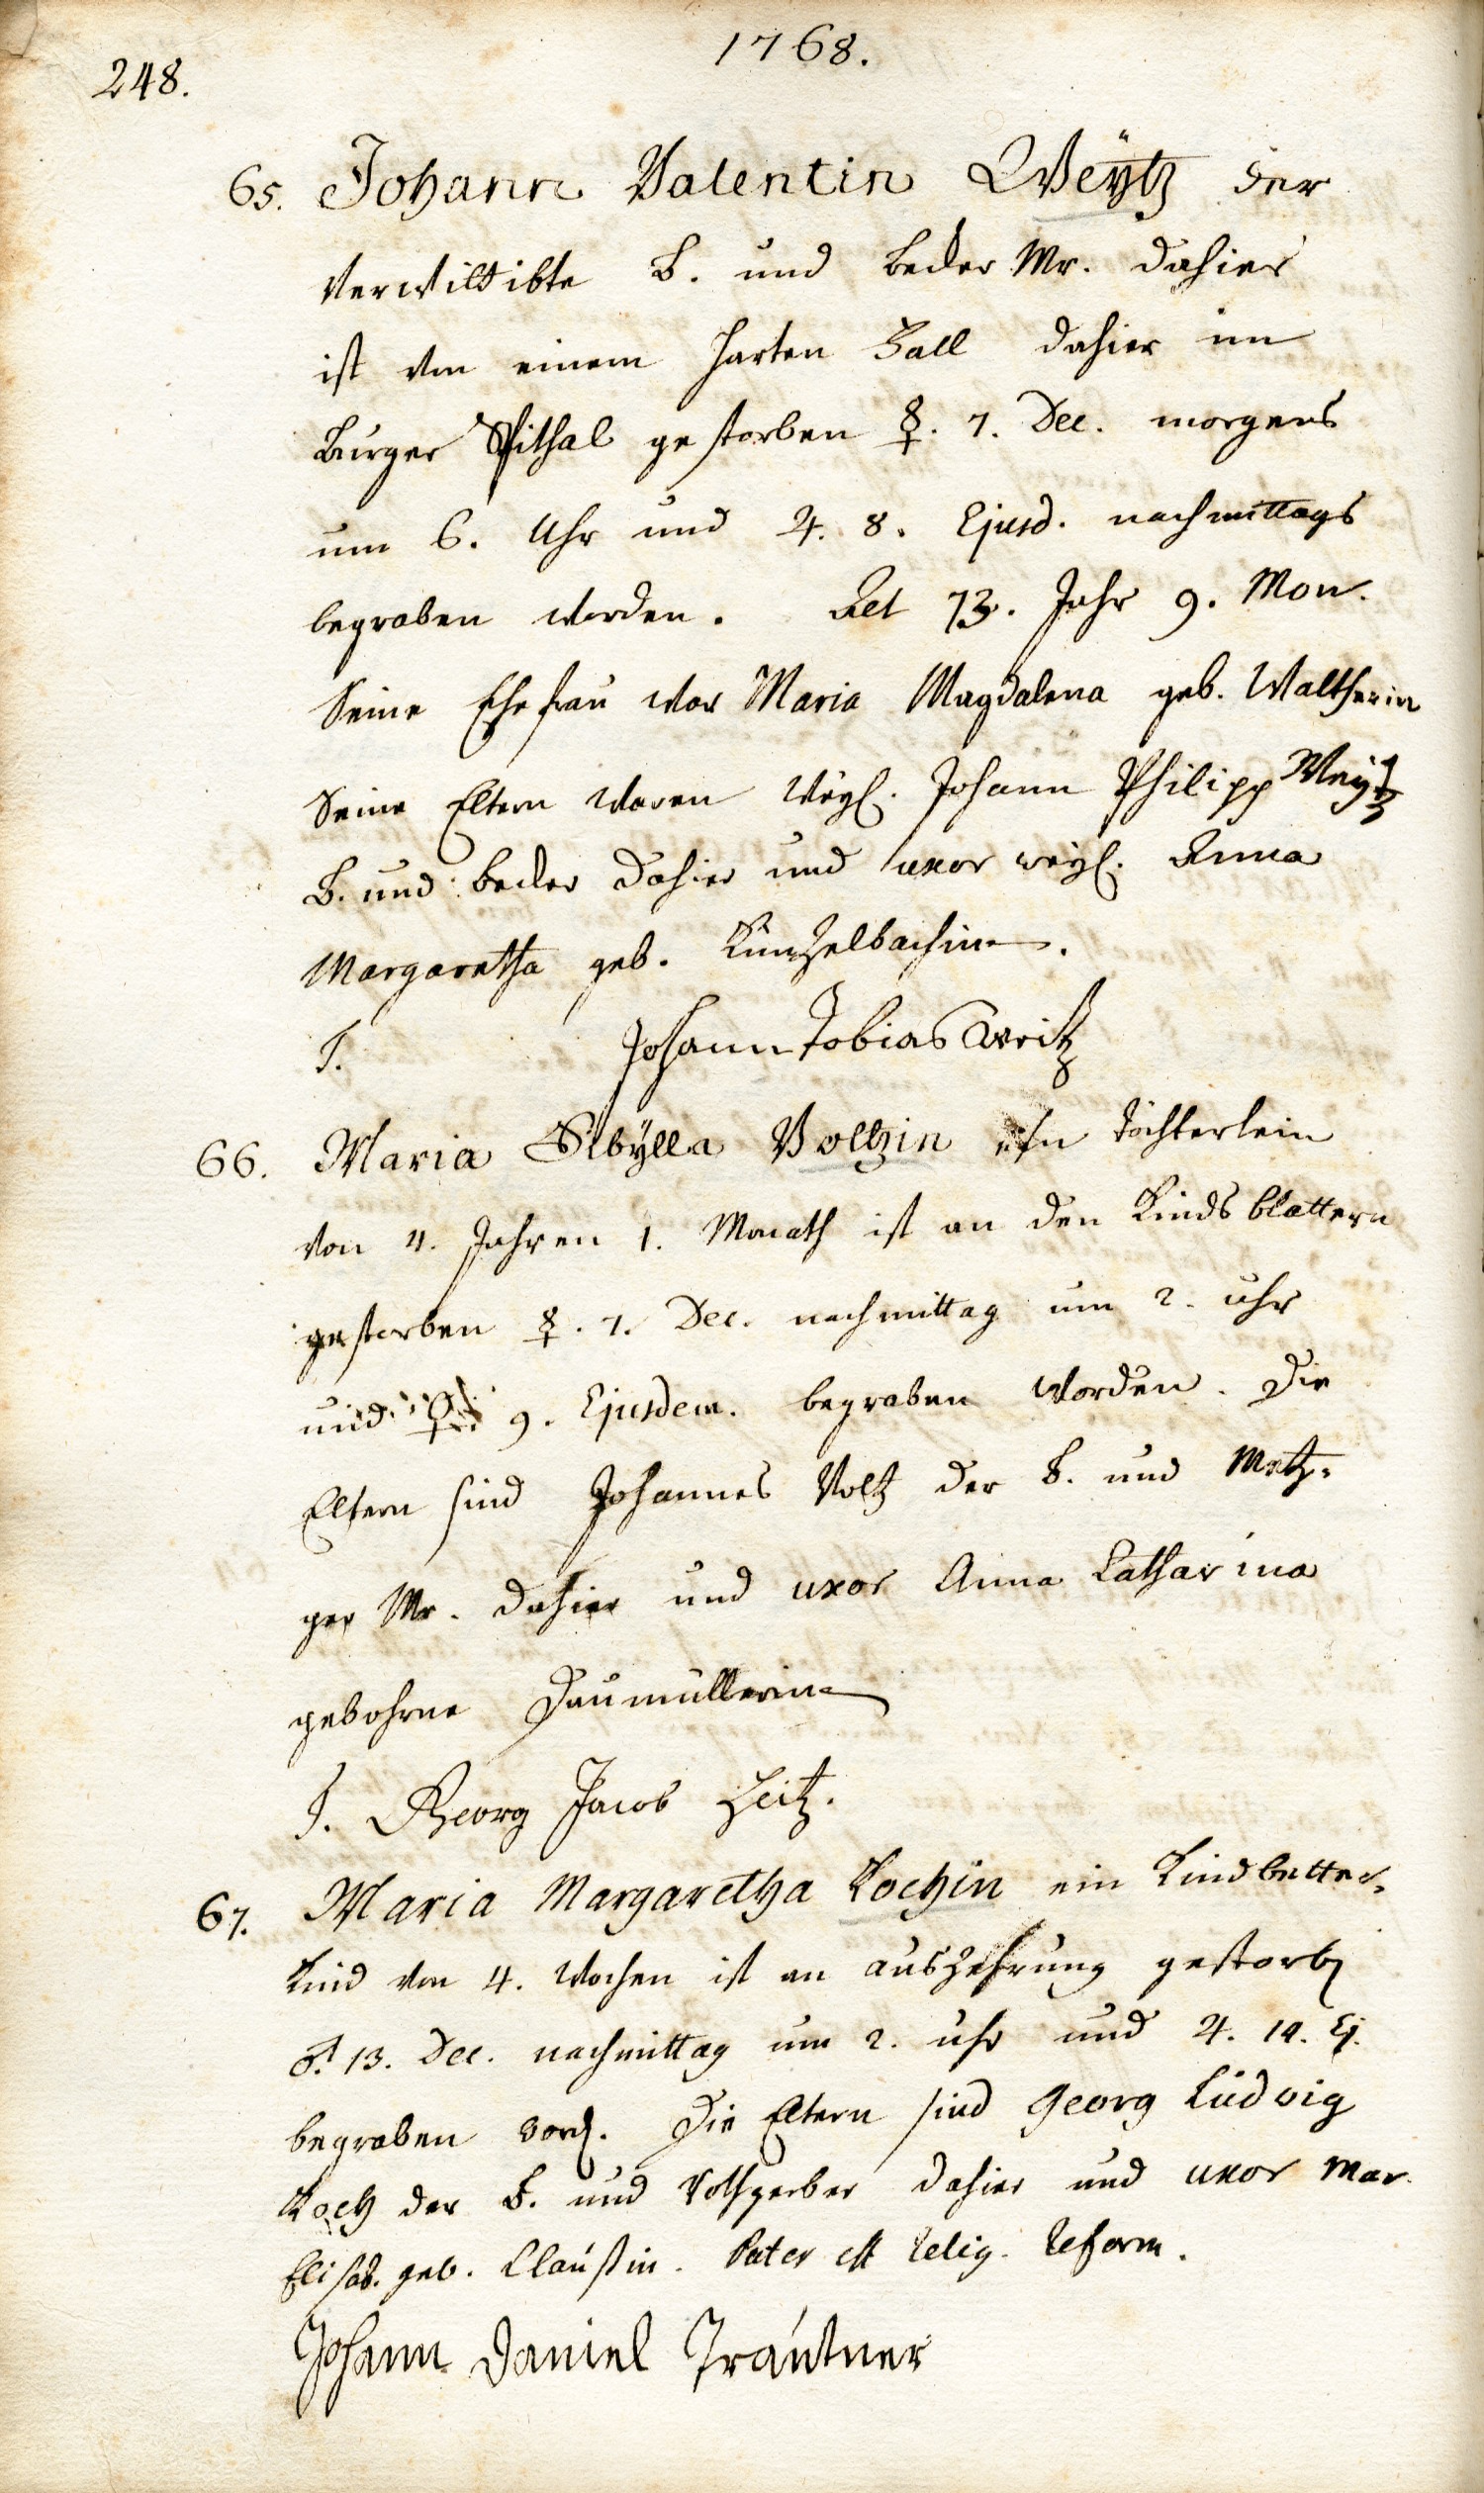 1768.
248.
65. Johann Valentin Weÿtz der
verwittibte B. und Becker Mr. dahier
ist von einem harten Fall dahier im
Burger Spithal gestorben ☿. 7. Dec. morgens
um 6. Uhr und ♃. 8. Ejusd. nachmittags
begraben worden. Aet 73. Jahr 9. Mon.
Seine Ehefrau war Maria Magdalena geb. Waltherin
Seine Eltern waren weyl. Johann Philipp Weytz
B. und Becker dahier und uxor weyl. Anna
Margaretha geb. Künzelbachin.
T. Johann Tobias Weitz
66. Maria Sibÿlla Voltzin ein Töchterlein
von 4. Jahren 1. Monath ist an den Kindsblattern
gestorben ☿. 7. Dec. nachmittag um 2. Uhr
und ♀ 9. Ejusdem. begraben worden. Die
Eltern sind Johannes Voltz der B. und Metz-
ger Mr. dahier und uxor Anna Catharina
gebohrne Daumüllerin
T. Georg Jacob Heitz.
67. Maria Margaretha Kochin ein Kindbetter-
Kind von 4. Wochen ist an Auszehrung gestorb
♂. 13. Dec. nachmittag um 2. Uhr und ♃. 14. Ej.
begraben word. Die Eltern sind Georg Ludwig
Koch der B. und Rothgerber dahier und uxor Mar.
Elisab. geb. Claußin. Pater est relig. Reform.
Johann Daniel Trautner